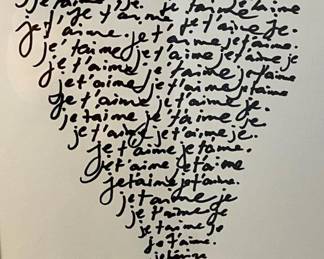 je t'aime, je. je t'aime je t'aime
je t'je t'aime je t'aime je.
t'aime. je t'aime je t'aime.
je t'aime je t'aime je t'aime je
je t'aime je t'aime je t'aime
je t'aime je t'aime je t'aime.
je t'aime je t'aime je.
je t'aime je t'aime je.
je t'aime je t'aime je..
je t'aime je t'aime.
je t'aime je t'aime
je t'aime je t'aime.
je t'aime je
je t'aime je
je t'aime je
je t'aime.
je t'aime